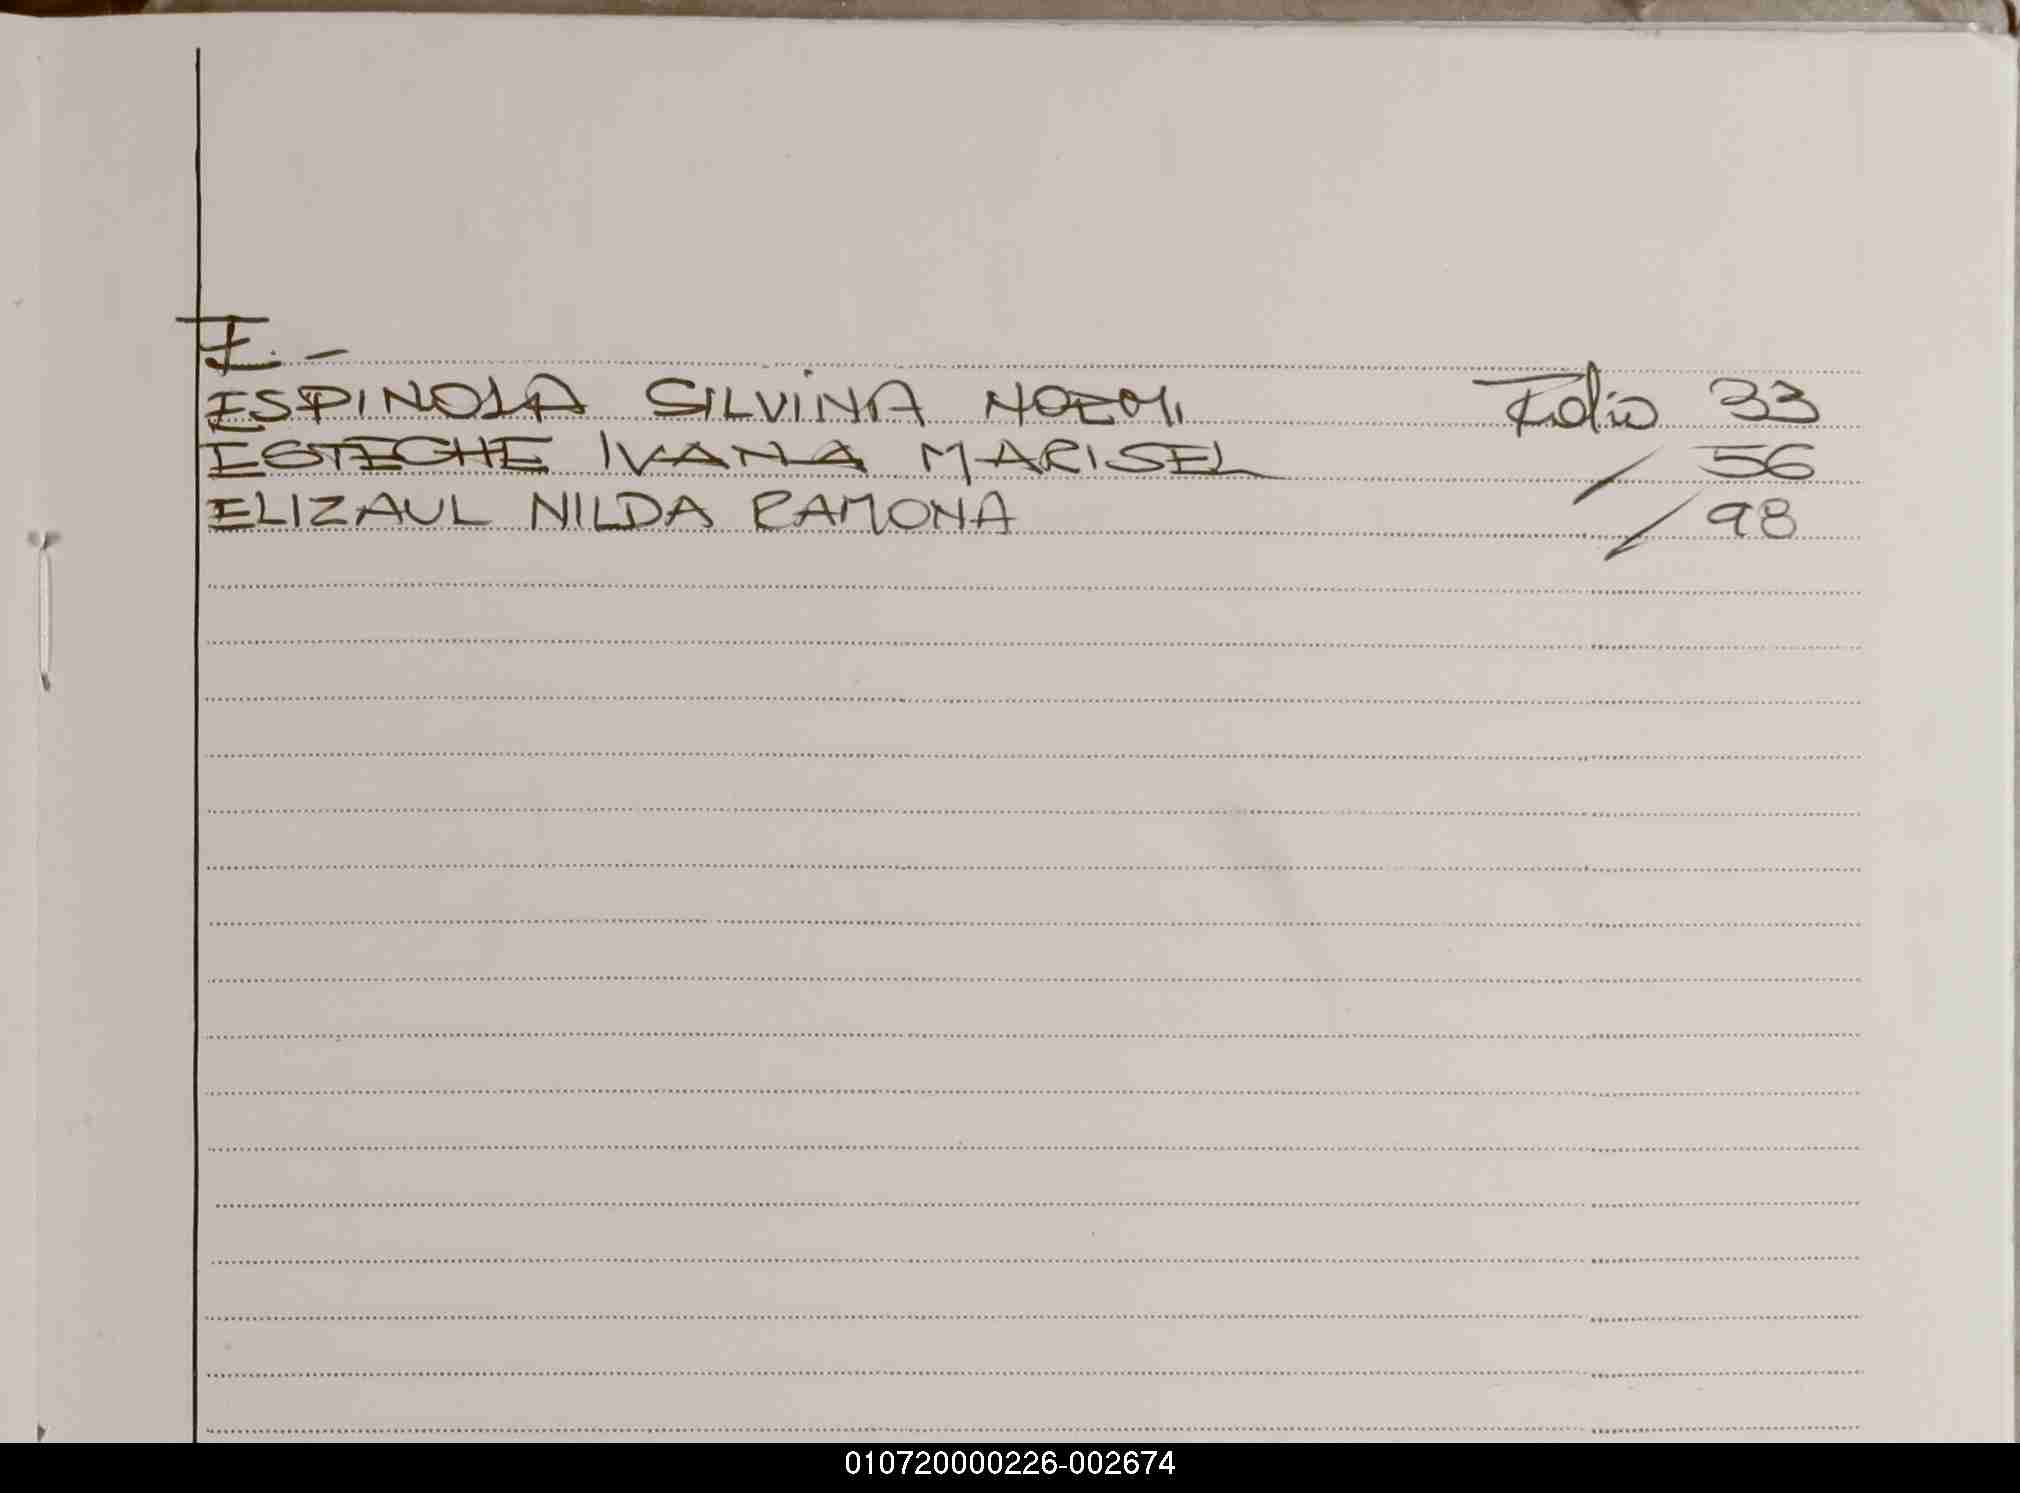 E. -
ESPINOLA SILVINA NOEMI Folio 33
ESTECHE IVANA MARISEL / 56
ELIZAUL NILDA RAMONA / 98
010720000226-002674